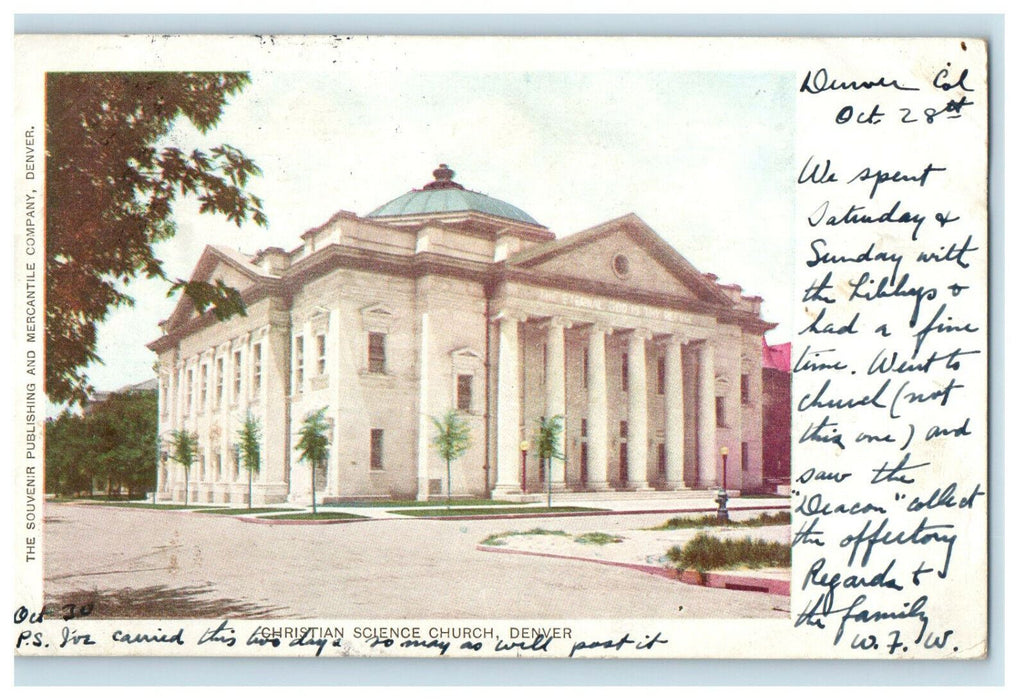 THE SOUVENIR PUBLISHING AND MERCANTILE COMPANY, DENVER.
Denver Col
Oct. 28th
We spent
Saturday &
Sunday with
the Libbys &
had a fine
time. Went to
church (not
this one) and
saw the
"Deacon" collect
the offertory
Regards to
the family
W. F. W.
Oct 30
P.S. I've carried this two days so may as well post it
CHRISTIAN SCIENCE CHURCH, DENVER